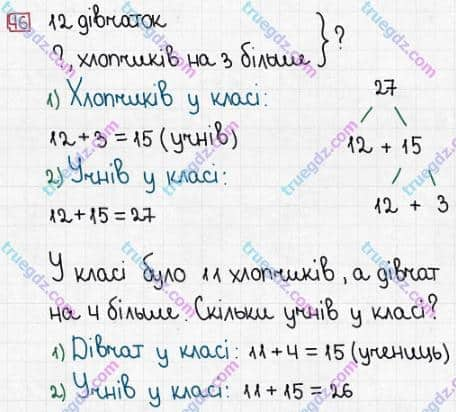 46 12 дівчаток
?, хлопчиків на 3 більше } ?
1) Хлопчиків у класі:
12 + 3 = 15 (учнів)
2) Учнів у класі:
12 + 15 = 27
27
12 + 15
12 + 3
У класі було 11 хлопчиків, а дівчат
на 4 більше. Скільки учнів у класі?
1) Дівчат у класі: 11 + 4 = 15 (учениць)
2) Учнів у класі: 11 + 15 = 26
truegdz.com